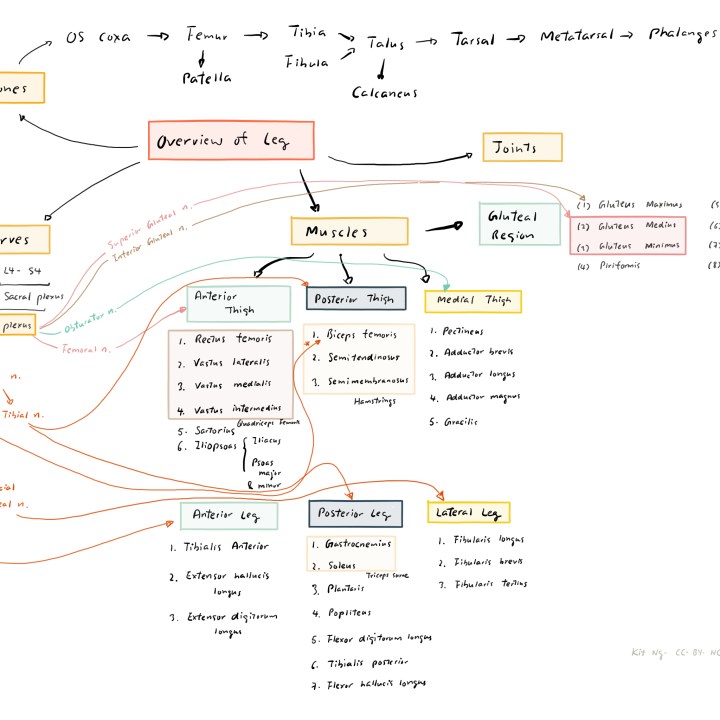 OS coxa → Femur → Tibia
Fibula
Talus → Tarsal → Metatarsal → Phalanges
Patella
Calcaneus
ones
Overview of Leg
Joints
Superior Gluteal n.
Interior Gluteal n.
(1) Gluteus Maximus
(2) Gluteus Medius
(3) Gluteus Minimus
(4) Piriformis
Gluteal
Region
Muscles
rves
L4 - S4
Sacral plexus
plexus
Obturator n.
Femoral n.
Anterior
Thigh
1. Rectus femoris
2. Vastus lateralis
3. Vastus medialis
4. Vastus intermedius
Quadriceps femoris
5. Sartorius
6. Iliopsoas
Iliacus
Psoas
major
& minor
Posterior Thigh
1. Biceps femoris
2. Semitendinosus
3. Semimembranosus
Hamstrings
Medial Thigh
1. Pectineus
2. Adductor brevis
3. Adductor longus
4. Adductor magnus
5. Gracilis
n.
Tibial n.
cial
eal n.
Anterior Leg
1. Tibialis Anterior
2. Extensor hallucis
longus
3. Extensor digitorum
longus
Posterior Leg
1. Gastrocnemius
2. Soleus
Triceps surae
3. Plantaris
4. Popliteus
5. Flexor digitorum longus
6. Tibialis posterior
7. Flexor hallucis longus
Lateral Leg
1. Fibularis longus
2. Fibularis brevis
3. Fibularis tertius
Kit Ng. CC-BY-NC